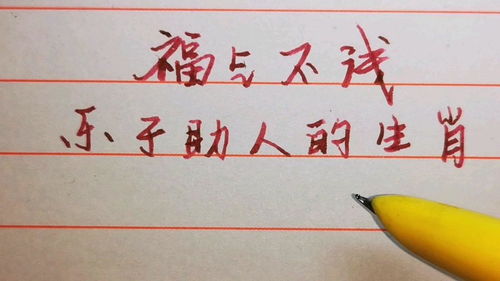 福气不浅
乐于助人的生肖